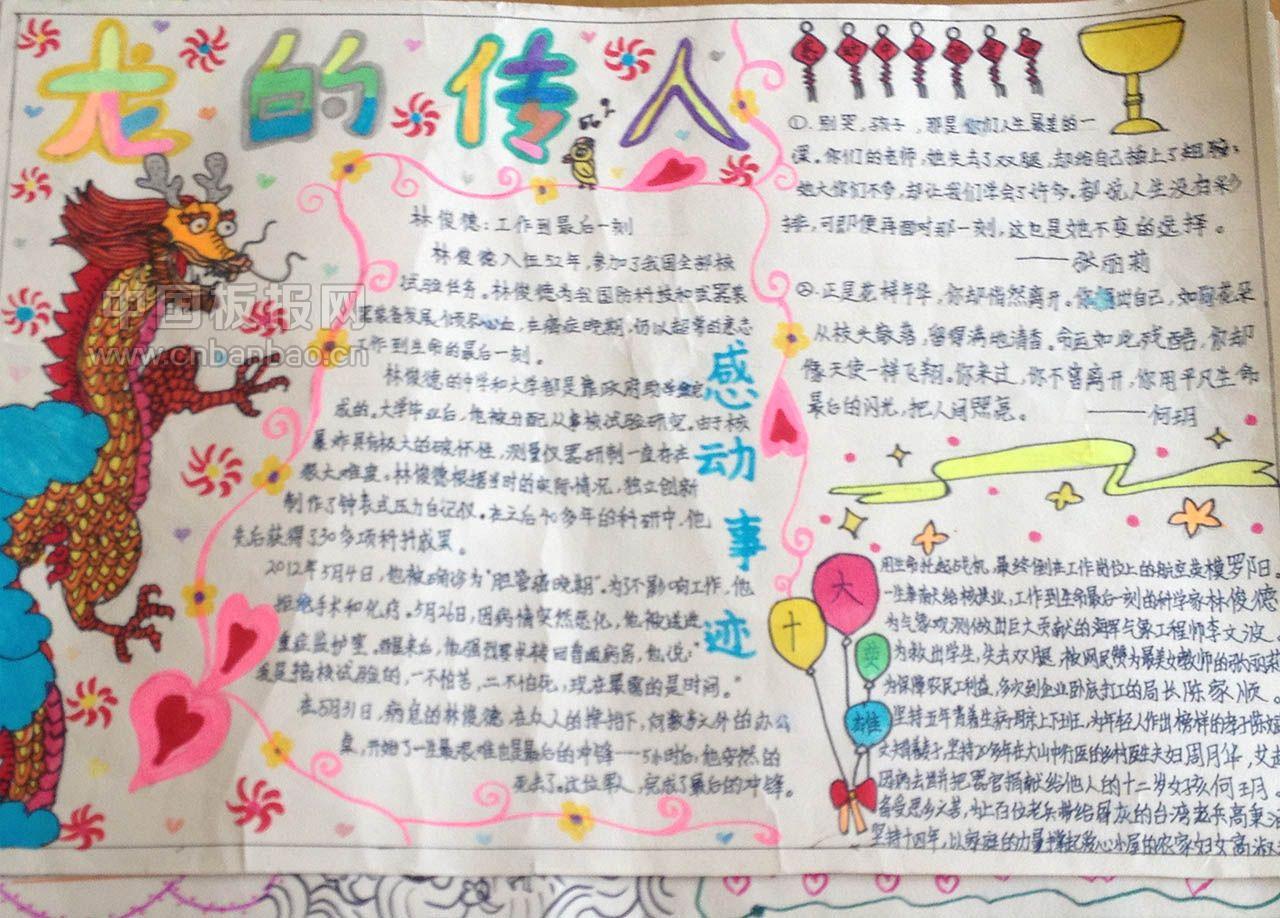 龙的传人
林俊德：工作到最后一刻
林俊德入伍52年，参加了我国全部核
试验任务。林俊德为我国防科技和武器装
备发展倾尽心血，在癌症晚期，仍以超常的意志
工作到生命的最后一刻。
林俊德的中学和大学都是靠政府助学金完
成的。大学毕业后，他被分配从事核试验研究。由于核
爆炸具有极大的破坏性，测量仪器研制一直存在
极大难度。林俊德根据当时的实际情况，独立创新
制作了钟表式压力自记仪。在之后40多年的科研中，他
先后获得了30多项科技成果。
2012年5月4日，他被确诊为“胆管癌晚期”。为了不影响工作，他
拒绝手术和化疗。5月26日，因病情突然恶化，他被送进
重症监护室。醒来后，他强烈要求转回普通病房，他说：“
我是搞核试验的，一不怕苦，二不怕死，现在最需的是时间。”
在5月31日，病危的林俊德，在众人的搀扶下，向数步之外的办公
桌，开始了一生最艰难也是最后的冲锋——5小时后，他安然的
死去了。这位军人，完成了最后的冲锋。
感动事迹
①．别哭，孩子，那是你们人生最美的一
课。你们的老师，她失去了双腿，却给自己插上了翅膀；
她大你们不多，却让我们学会了许多。都说人生没有彩
排，可即便再面对那一刻，这也是她不变的选择。
——张丽莉
②．正是花样年华，你却悄然离开。你捐出自己，如同花朵
从枝头散落，留得满地清香。命运如此残酷，你却
像天使一样飞翔。你来过，你不曾离开，你用平凡生命
最后的闪光，把人间照亮。
——何玥
十大英雄
用生命托起战机，最终倒在工作岗位上的航空英模罗阳。
一生奉献给核事业，工作到生命最后一刻的科学家林俊德
为气象观测做出巨大贡献的海军气象工程师李文波。
为救出学生，失去双腿，被网民赞为最美女教师的张丽莉
为保障农民工利益，多次到企业卧底打工的局长陈家顺。
坚持五年背着生病母亲上下班，为年轻人作出榜样的孝子陈
夫妇坚持20多年在大山中行医的乡村医生夫妇周月华，艾
因病去世并把器官捐献给他人的十二岁女孩何玥。
备受思乡之苦，为上百位老兵带给骨灰的台湾老兵高秉
坚持十四年，以家庭的力量撑起爱心小屋的农家妇女高淑
中国板报网
www.cnbanbao.cn